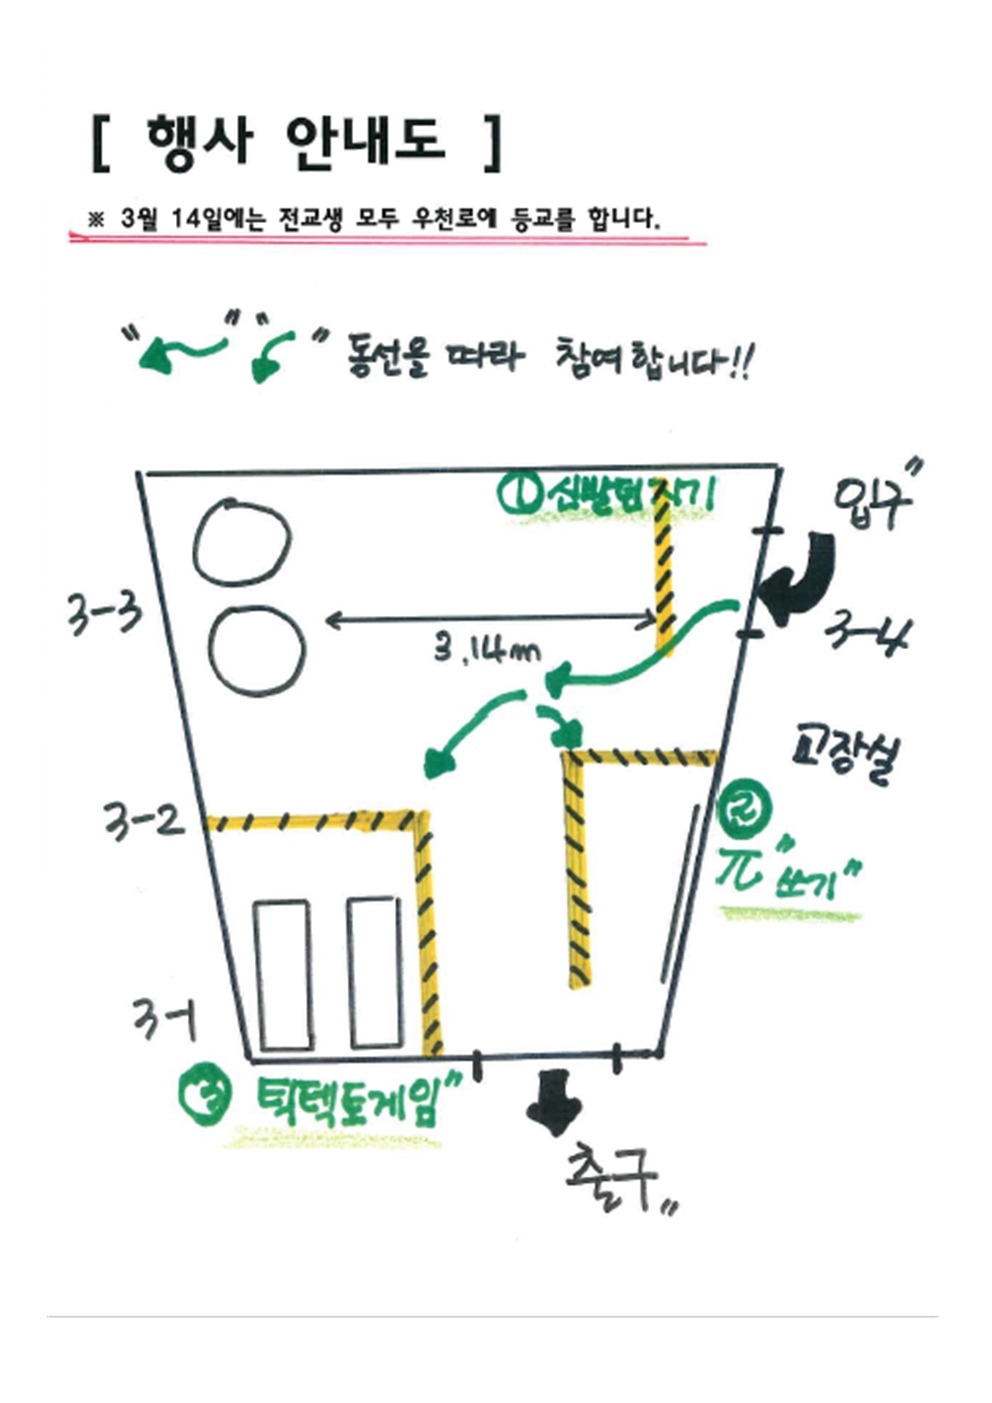 [ 행사 안내도 ]
※ 3월 14일에는 전교생 모두 우천로에 등교를 합니다.
" " " " 동선을 따라 참여합니다!!
① 신발던지기
입구"
3-3
3.14m
3-4
교장실
3-2
②
π "쓰기"
3-1
③ 틱텍토게임"
출구"